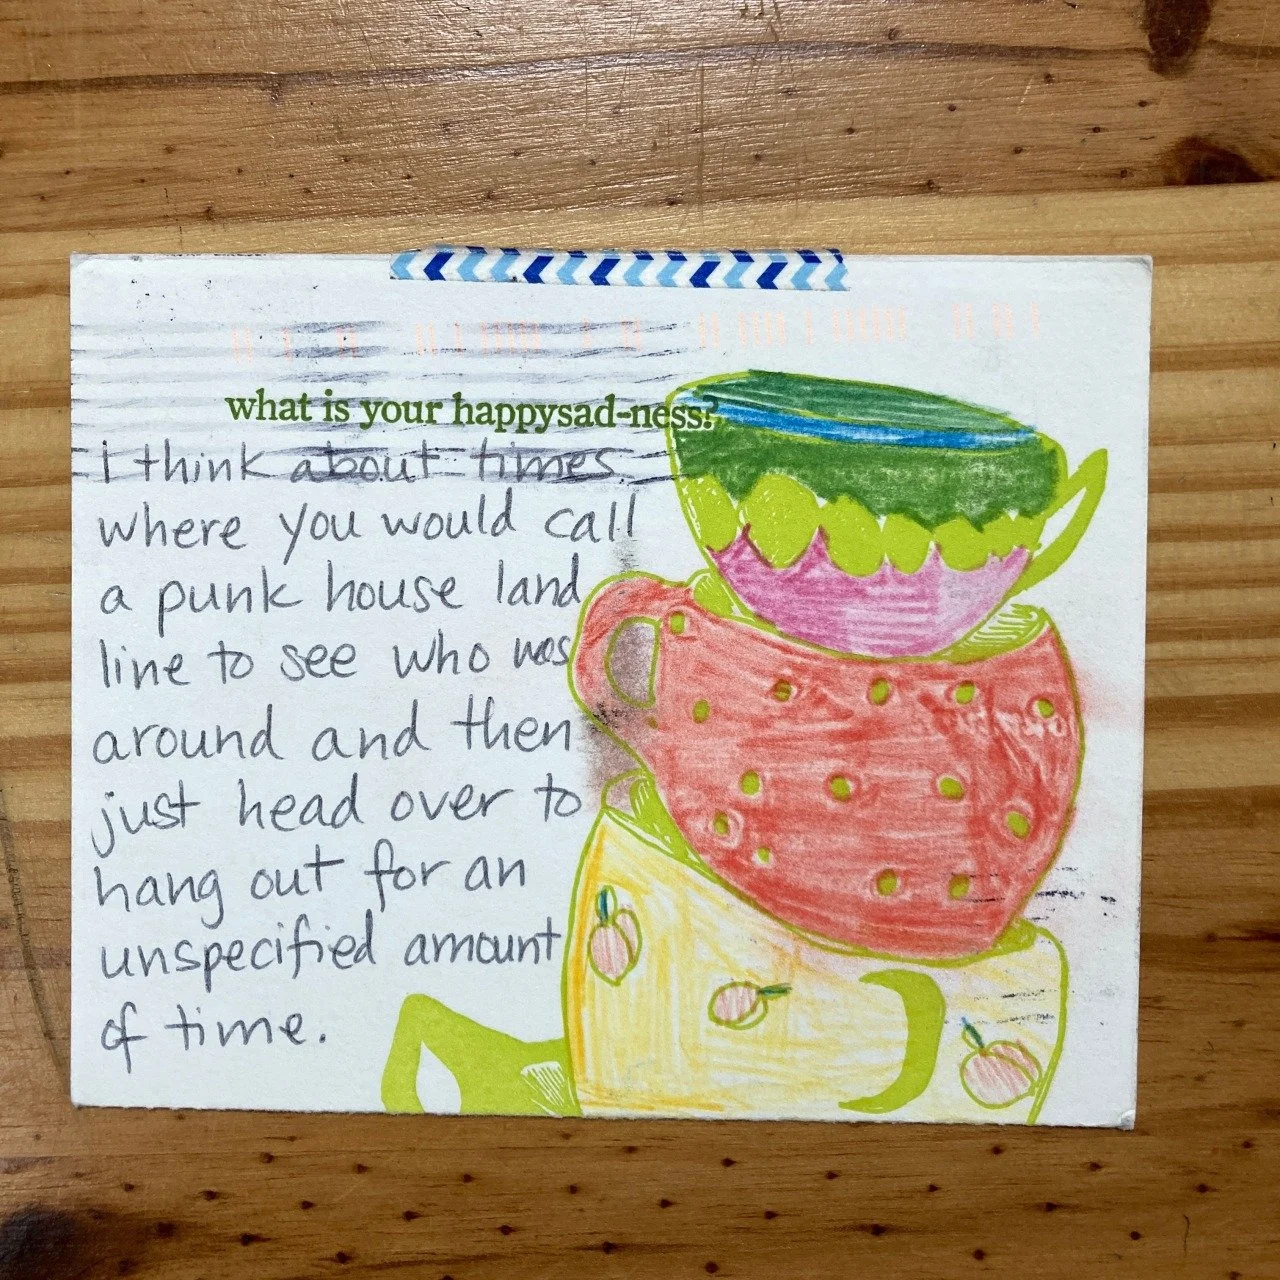 what is your happysad-ness?
i think about times
where you would call
a punk house land
line to see who was
around and then
just head over to
hang out for an
unspecified amount
of time.